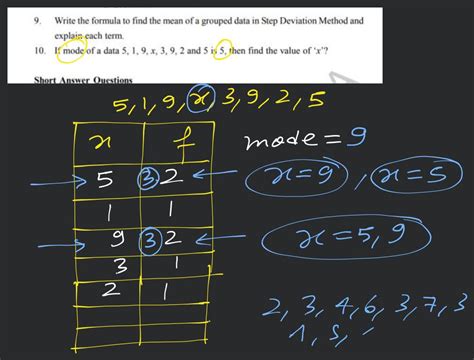 9. Write the formula to find the mean of a grouped data in Step Deviation Method and
explain each term.
10. If mode of a data 5, 1, 9, x, 3, 9, 2 and 5 is 5, then find the value of 'x'?
Short Answer Questions
5, 1, 9, x, 3, 9, 2, 5
x f
mode = 9
5 3 2
x = 9 , x = 5
1 1
9 3 2
x = 5, 9
3 1
2 1
2, 3, 4, 6, 3, 7, 3
1, 5, ,